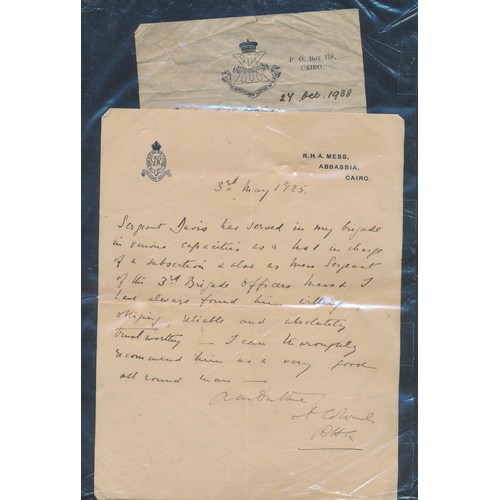 P. O. Box 158,
CAIRO.
24 Oct. 1988
R.H.A. MESS,
ABBASSIA,
CAIRO.
3rd May 1925.
Sergeant Davis has served in my brigade
in various capacities as a No 1 in charge
of a subsection & also as Mess Sergeant
of the 3rd Brigade Officers Mess & I
have always found him willing,
obliging, reliable and absolutely
trustworthy — I can thoroughly
recommend him as a very good
all round man —
Lt Colonel
RHA